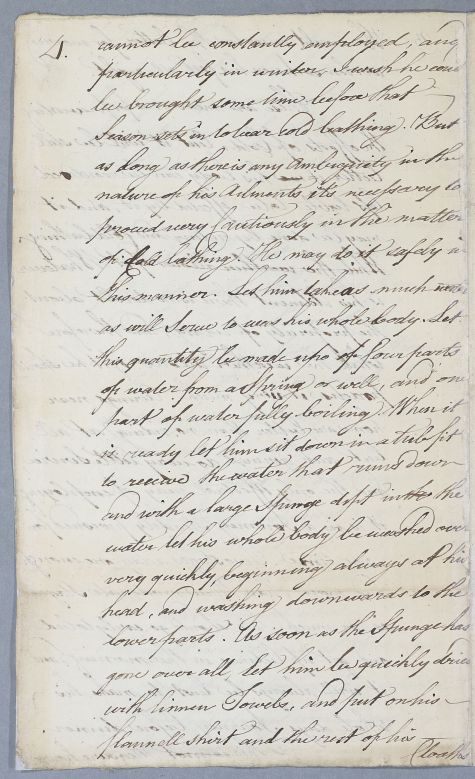 4. cannot be constantly employed, and
particularly in winter. I wish he cou
be brought some time before that
Season sets in to bear cold bathing. But
as long as there is any Ambiguity in the
nature of his Ailments its necessary to
proceed very Cautiously in the matter
of cold bathing. He may do it safely in
this manner. Let him take as much water
as will serve to wash his whole body. Let
this quantity be made up of four parts
of water from a Spring or well, and one
part of water fully boiling. When it
is ready let him sit down in a tub fit
to receive the water that runs down
and with a large Spunge dipt into the
water let his whole body be washed over
very quickly, beginning always at his
head, and washing downwards to the
lower parts. As soon as the Spunge has
gone over all, let him be quickly dried
with linnen Towels, and put on his
flannell shirt and the rest of his
Cloaths